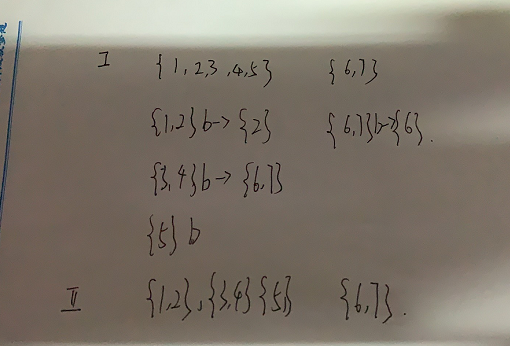 I {1,2,3,4,5} {6,7}
{1,2}b→{2} {6,7}b→{6}.
{3,4}b→{6,7}
{5}b
II {1,2},{3,4}{5} {6,7}.